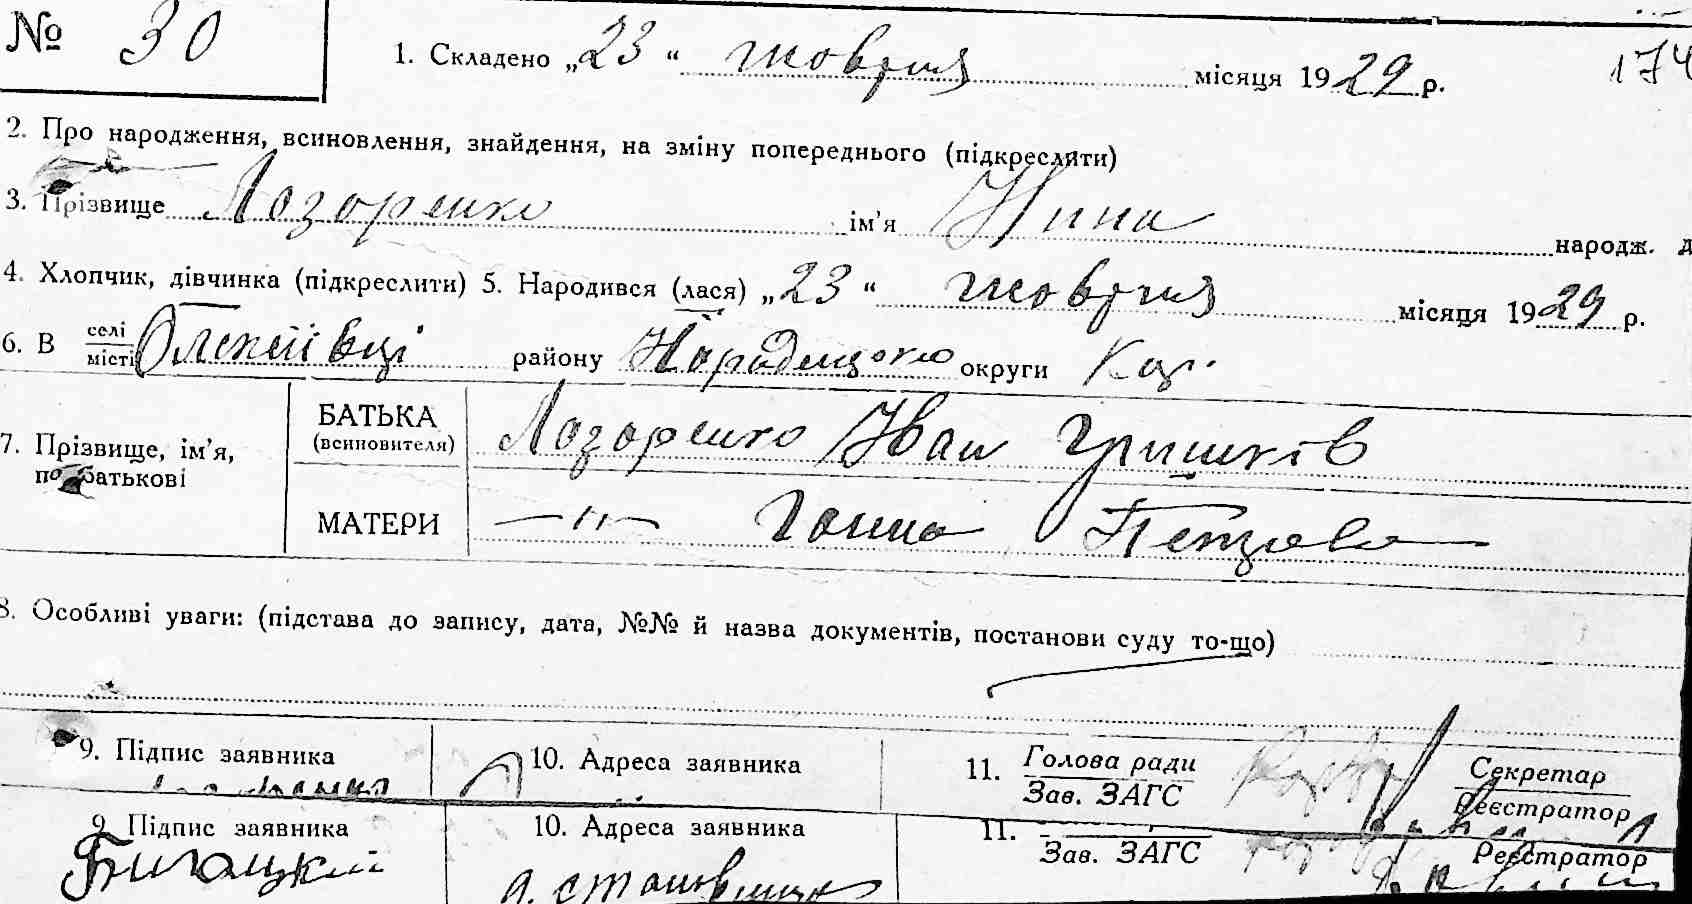 № 30
1. Складено „23“ жовтня місяця 1929 р. 174
2. Про народження, всиновлення, знайдення, на зміну попереднього (підкреслити)
3. Прізвище Лазаренко ім'я Нина народж. д
4. Хлопчик, дівчинка (підкреслити) 5. Народився (лася) „23“ жовтня місяця 1929 р.
6. В селі місті Олексіївці району Народицького округи Кор.
7. Прізвище, ім'я, по батькові БАТЬКА (всиновителя) Лазаренко Іван Гришків
МАТЕРИ —"— Ганна Петрова
8. Особливі уваги: (підстава до запису, дата, №№ й назва документів, постанови суду то-що)
9. Підпис заявника 10. Адреса заявника 11. Голова ради Зав. ЗАГС Секретар Реєстратор
9. Підпис заявника 10. Адреса заявника 11. Зав. ЗАГС Реєстратор